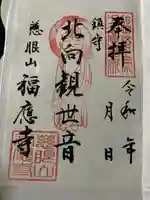 奉拝
令和 年
月 日
鎮守
北向観世音
慈眼山
福應寺